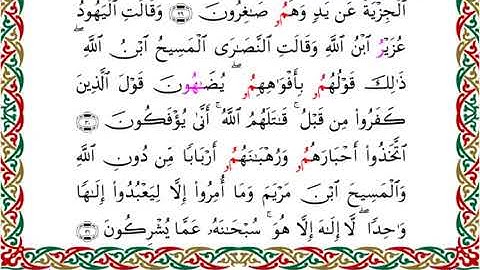 اَ۬لْجِزْيَةَ عَنْ يَدٍ وَهُمُۥ صَٰغِرُونَ ۝٢٩ وَقَالَتِ اِ۬لْيَهُودُ
عُزَيْرُ اُ۪بْنُ اُ۬للَّهِ وَقَالَتِ اِ۬لنَّصَٰرَى اَ۬لْمَسِيحُ اُ۪بْنُ اُ۬للَّهِۖ
ذَٰلِكَ قَوْلُهُمُۥ بِأَفْوَٰهِهِمُۥۖ يُضَٰهُونَ قَوْلَ اَ۬لَّذِينَ
كَفَرُوا۟ مِن قَبْلُۚ قَٰتَلَهُمُ اُ۬للَّهُۚ أَنَّىٰ يُؤْفَكُونَ ۝٣٠
اَ۪تَّخَذُوٓا۟ أَحْبَارَهُمُۥ وَرُهْبَٰنَهُمُۥ أَرْبَابًا مِّن دُونِ اِ۬للَّهِ
وَالْمَسِيحَ اَ۪بْنَ مَرْيَمَ وَمَا أُمِرُوا۟ إِلَّا لِيَعْبُدُوا۟ إِلَٰهًا
وَٰحِدًاۖ لَّا إِلَٰهَ إِلَّا هُوَۚ سُبْحَٰنَهُۥ عَمَّا يُشْرِكُونَ ۝٣١